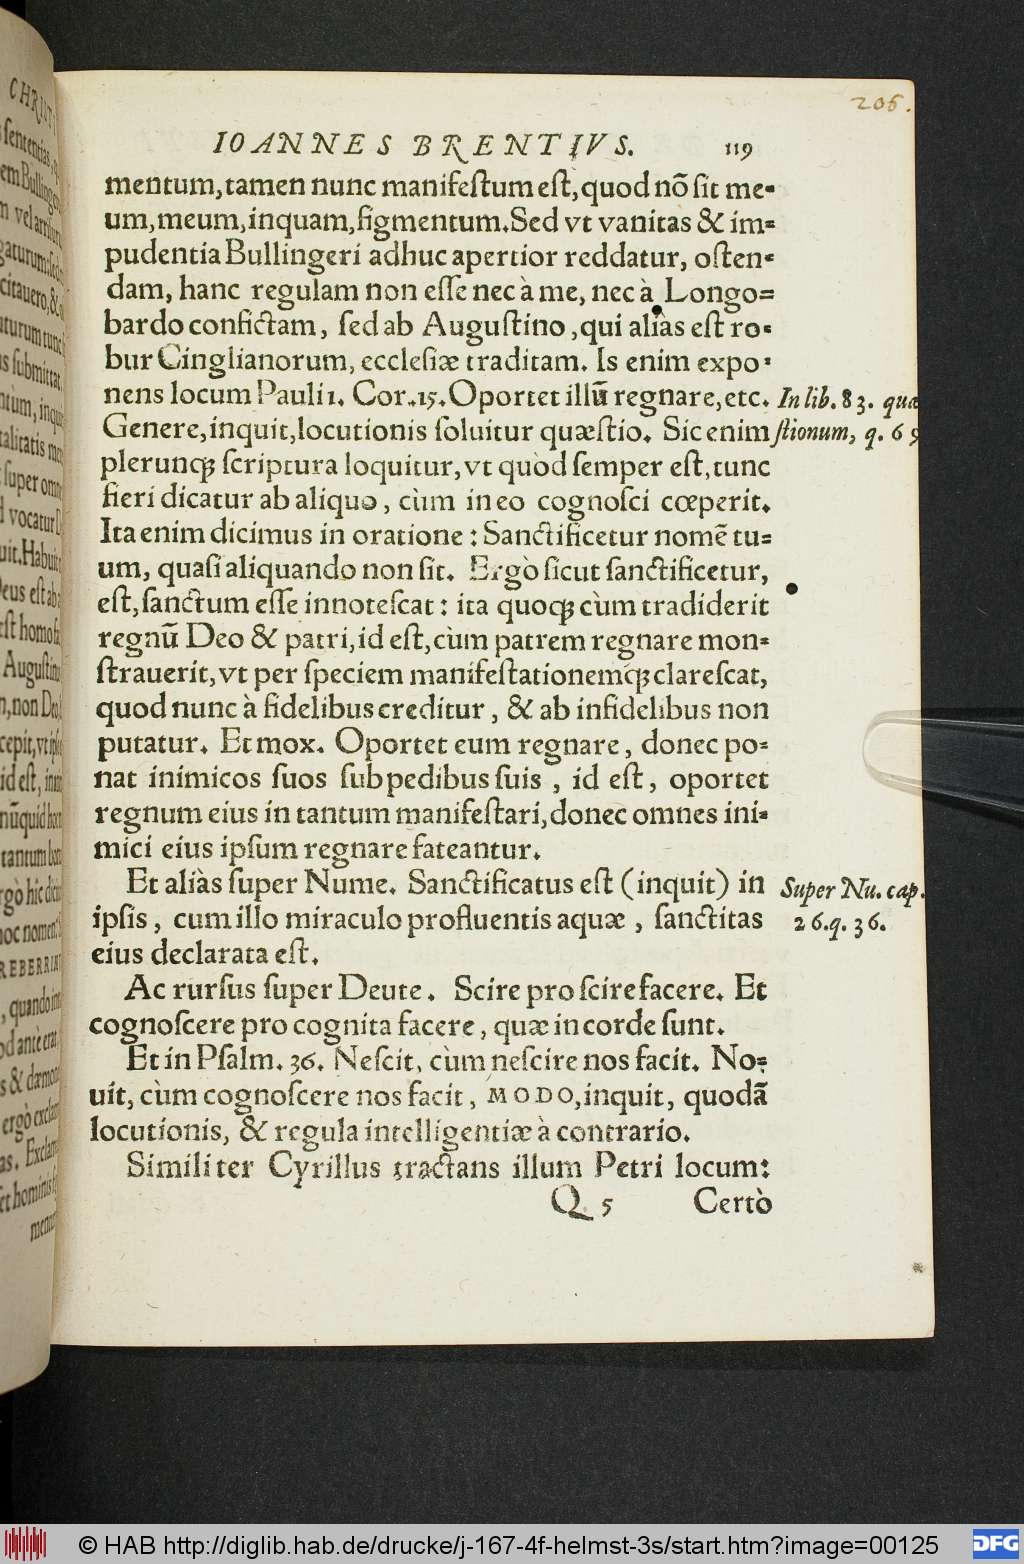 206.
IOANNES BRENTIVS. 119
mentum, tamen nunc manifestum est, quod nō sit me-
um, meum, inquam, figmentum. Sed vt vanitas & im-
pudentia Bullingeri adhuc apertior reddatur, osten-
dam, hanc regulam non esse nec à me, nec à Longo-
bardo confictam, sed ab Augustino, qui aliàs est ro-
bur Cinglianorum, ecclesiæ traditam. Is enim expo-
nens locum Pauli 1. Cor. 15. Oportet illū regnare, etc. In lib. 83. quæ
Genere, inquit, locutionis soluitur quæstio. Sic enim stionum, q. 69
plerunq; scriptura loquitur, vt quòd semper est, tunc
fieri dicatur ab aliquo, cùm in eo cognosci cœperit.
Ita enim dicimus in oratione: Sanctificetur nomē tu-
um, quasi aliquando non sit. Ergò sicut sanctificetur,
est, sanctum esse innotescat: ita quoq; cùm tradiderit
regnū Deo & patri, id est, cùm patrem regnare mon-
strauerit, vt per speciem manifestationemq; clarescat,
quod nunc à fidelibus creditur, & ab infidelibus non
putatur. Et mox. Oportet eum regnare, donec po-
nat inimicos suos sub pedibus suis, id est, oportet
regnum eius in tantum manifestari, donec omnes ini-
mici eius ipsum regnare fateantur.
Et aliàs super Nume. Sanctificatus est (inquit) in Super Nu. cap.
ipsis, cum illo miraculo profluentis aquæ, sanctitas 26. q. 36.
eius declarata est.
Ac rursus super Deute. Scire pro scire facere. Et
cognoscere pro cognita facere, quæ in corde sunt.
Et in Psalm. 36. Nescit, cùm nescire nos facit. No-
uit, cùm cognoscere nos facit, MODO, inquit, quodā
locutionis, & regula intelligentiæ à contrario.
Similiter Cyrillus tractans illum Petri locum:
Q 5 Certò
© HAB http://diglib.hab.de/drucke/j-167-4f-helmst-3s/start.htm?image=00125
DFG